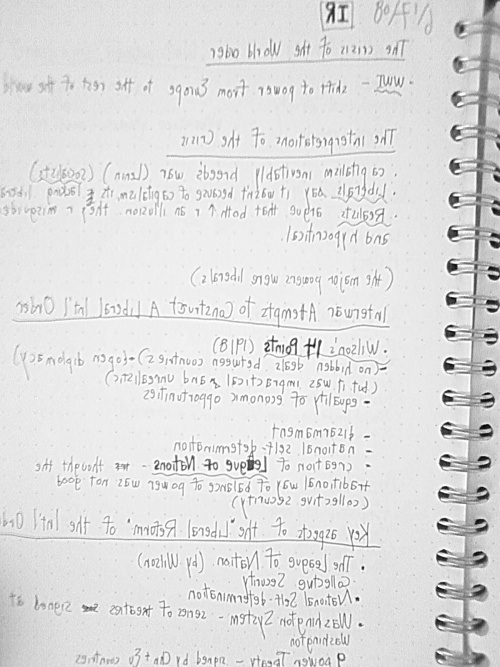 IR
The crisis of the World order
WWI - shift of power from Europe to the rest of the world
The interpretations of the crisis
. capitalism inevitably breeds war (Lenin) (socialists)
. Liberals say it wasn't because of capitalism, it's lacking libera
. Realists argue that both ↑ r an illusion. they r misguided
and hypocritical.
(the major powers were liberals)
Interwar Attempts To Construct A Liberal Int'l Order
. Wilson's 14 Points (1918)
-(no hidden deals between countries) - (open diplomacy)
(but it was impractical and unrealistic)
- equality of economic opportunities
- disarmament
- national self-determination
- creation of League of Nations - thought the
traditional way of balance of power was not good
(collective security)
Key aspects of the "Liberal Reform" of the Int'l Ord
. The League of Nation (by Wilson)
Collective Security
. National Self-determination
. Washington System - series of treaties signed at
Washington
9 power Treaty - signed by countries